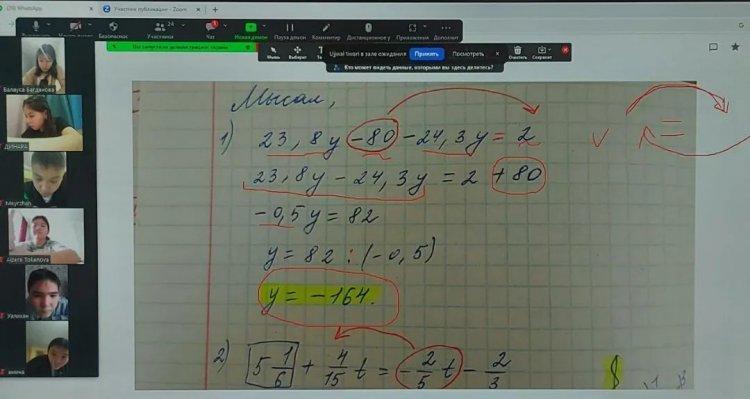 WhatsApp
Участник публикации - Zoom
Безопасность
Участники 24
Чат
Новый показ
Пауза демон
Комментир
Дистанционное у
Приложения
Дополнит
Вы запустили демонстрацию экрана
в зале ожидания
Принять
Посмотреть
Мышь
Выбрать
Очистить
Сохранит
Кто может видеть данные, которыми вы здесь делитесь?
Балауса Багданова
ДИНАРА
Meyrzhan
Aizere Tolkanova
Уалихан
амина
Мысал,
1) 23,8y -80 -24,3y = 2
=
23,8y - 24,3y = 2 +80
-0,5y = 82
y = 82 : (-0,5)
y = -164.
2) 5 1/6 + 4/15 t = - 2/5 t - 2/3